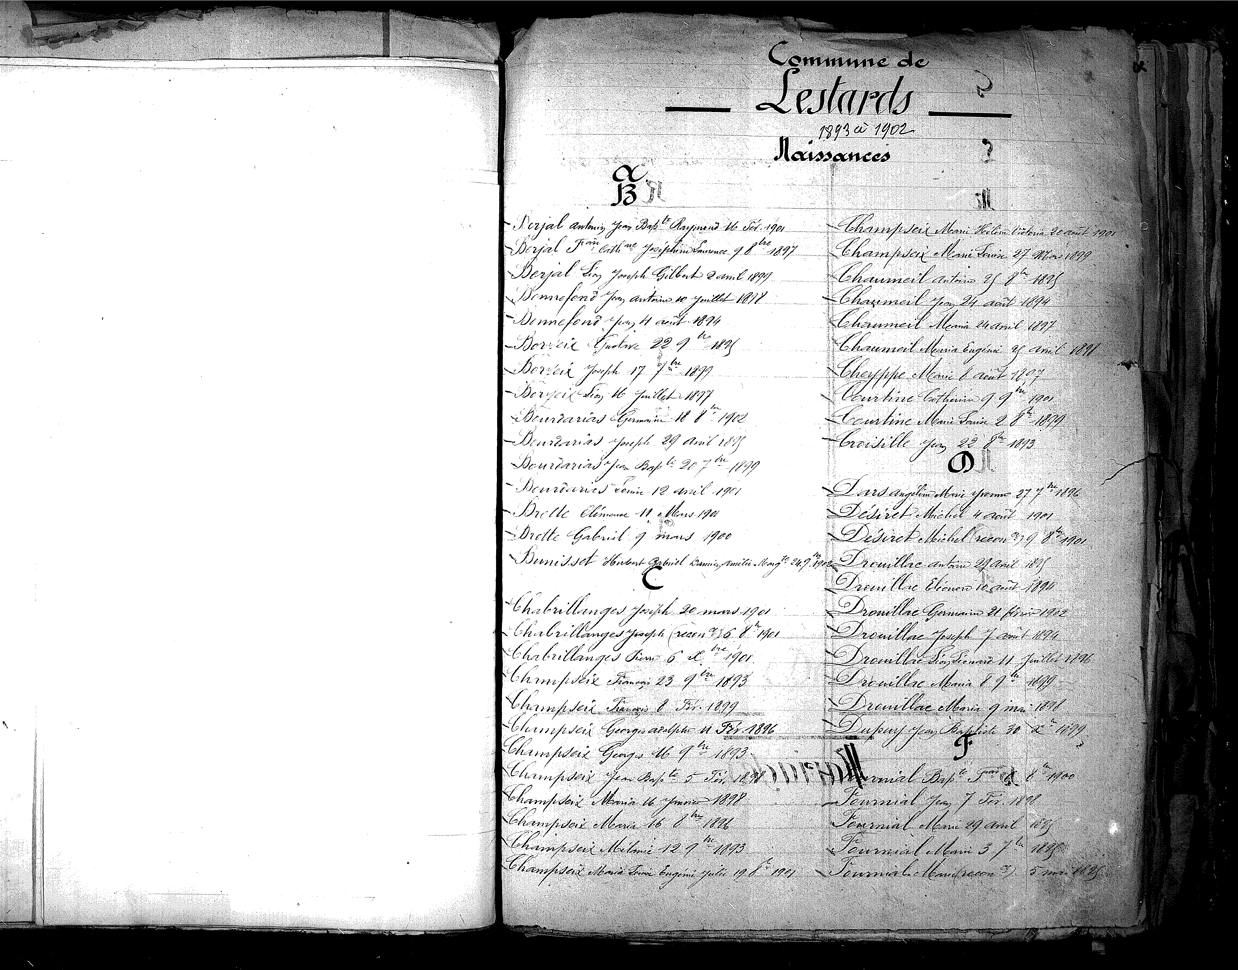 Commune de
Lestards
1893 à 1902
Naissances
A
B
Berjal Antonin Jean Bapte Raymond 16 Fév. 1901
Berjal Jean Cathne Joséphine Laurence 9 8bre 1897
Berjal Léon Joseph Gilbert 2 avril 1899
Bonnefond Jean Antoine 10 Juillet 1898
Bonnefond Jean 4 août 1894
Borzeix Gustave 22 9bre 1895
Borzeix Joseph 17 7bre 1899
Borzeix Léon 16 Juillet 1897
Bourdarias Germaine 18 8bre 1902
Bourdarias Joseph 29 avril 1895
Bourdarias Jean Bapte 20 7bre 1899
Bourdarias Louise 12 avril 1901
Brette Clémence 11 Mars 1901
Brette Gabriel 9 mars 1900
Bunisset Herbert Gabriel Amélie Margte 24 9bre 1902
C
Chabrillanges Joseph 20 mars 1901
Chabrillanges Joseph (recon ce) 6 8bre 1901
Chabrillanges Pierre 6 Xbre 1901
Champseix François 23 9bre 1893
Champseix François 8 Fév. 1899
Champseix Georges Adolphe 11 Fév. 1896
Champseix Georges 16 9bre 1893
Champseix Jean Bapte 5 Fév. 1898
Champseix Maria 16 Janvier 1898
Champseix Maria 16 8bre 1896
Champseix Mélanie 12 9bre 1893
Champseix Marie Louise Eugénie Julie 19 8bre 1901
Champseix Marie Hélène Victoria 20 août 1901
Champseix Marie Louise 27 Mars 1899
Chaumeil Antoine 25 8bre 1895
Chaumeil Jean 24 août 1894
Chaumeil Maria 24 avril 1897
Chaumeil Maria Eugénie 25 avril 1898
Cheyppe Marie 8 août 1897
Courtine Catherine 9 9bre 1901
Courtine Marie Louise 2 8bre 1899
Croisille Jean 22 8bre 1893
D
Dars Angéline Marie Yvonne 27 7bre 1896
Désiret Michel 4 août 1901
Désiret Michel (recon ce) 9 8bre 1901
Drouillac Antoine 29 avril 1895
Drouillac Eléonore 10 août 1894
Drouillac Germaine 21 février 1902
Drouillac Joseph 7 août 1894
Drouillac Léon Léonard 11 Juillet 1896
Drouillac Maria 8 9bre 1899
Drouillac Maria 9 mai 1898
Dupuy Jean Baptiste 30 Xbre 1899
F
Fournial Bapte 8bre 1900
Fournial Jean 7 Fév. 1898
Fournial Marie 29 avril 1895
Fournial Marie 3 7bre 1895
Fournial Marie (recon ce) 5 mai 1895